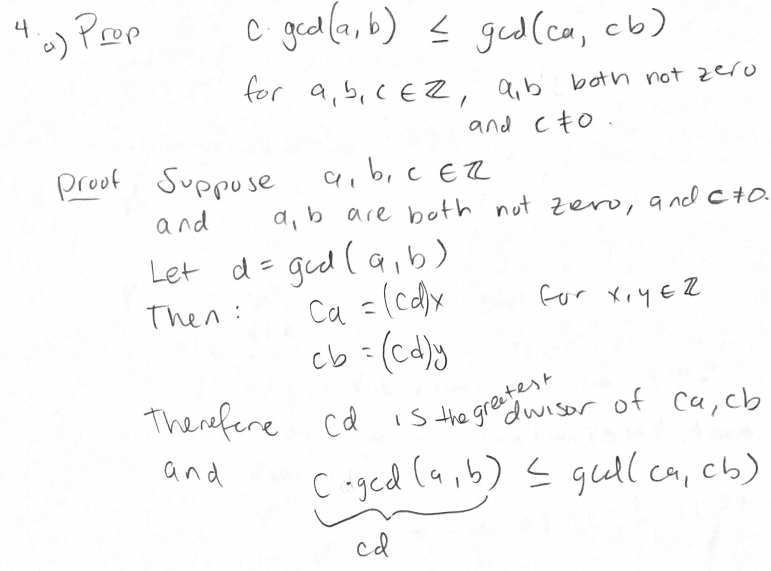 4. a) Prop c · gcd(a, b) ≤ gcd(ca, cb)
for a, b, c ∈ ℤ, a, b both not zero
and c ≠ 0.
Proof Suppose a, b, c ∈ ℤ
and a, b are both not zero, and c ≠ 0.
Let d = gcd(a, b)
Then: ca = (cd)x for x, y ∈ ℤ
cb = (cd)y
Therefore cd is the greatest divisor of ca, cb
and c · gcd(a, b) ≤ gcd(ca, cb)
cd